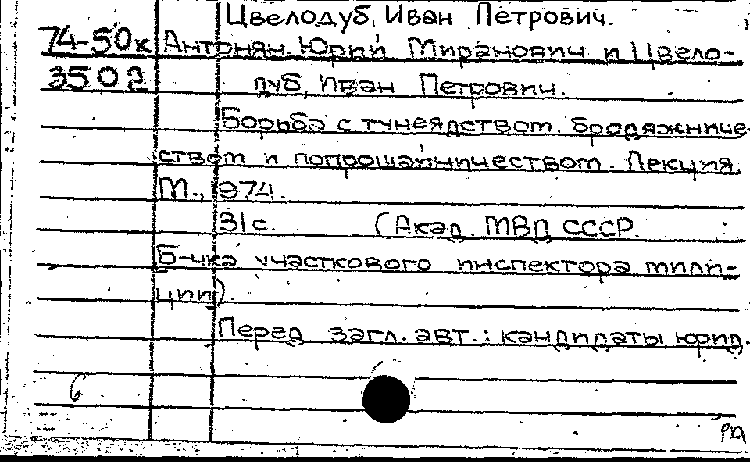 Цвелодуб, Иван Петрович.
74-50к Антонян, Юрий Миранович и Цвело-
3502 дуб, Иван Петрович.
Борьба с тунеядством, бродяжниче
ством и попрошайничеством. Лекция.
М., 1974.
31 с. (Акад. МВД СССР.
Б-чка участкового инспектора мили-
ции).
Перед загл. авт.: кандидаты юрид.
6